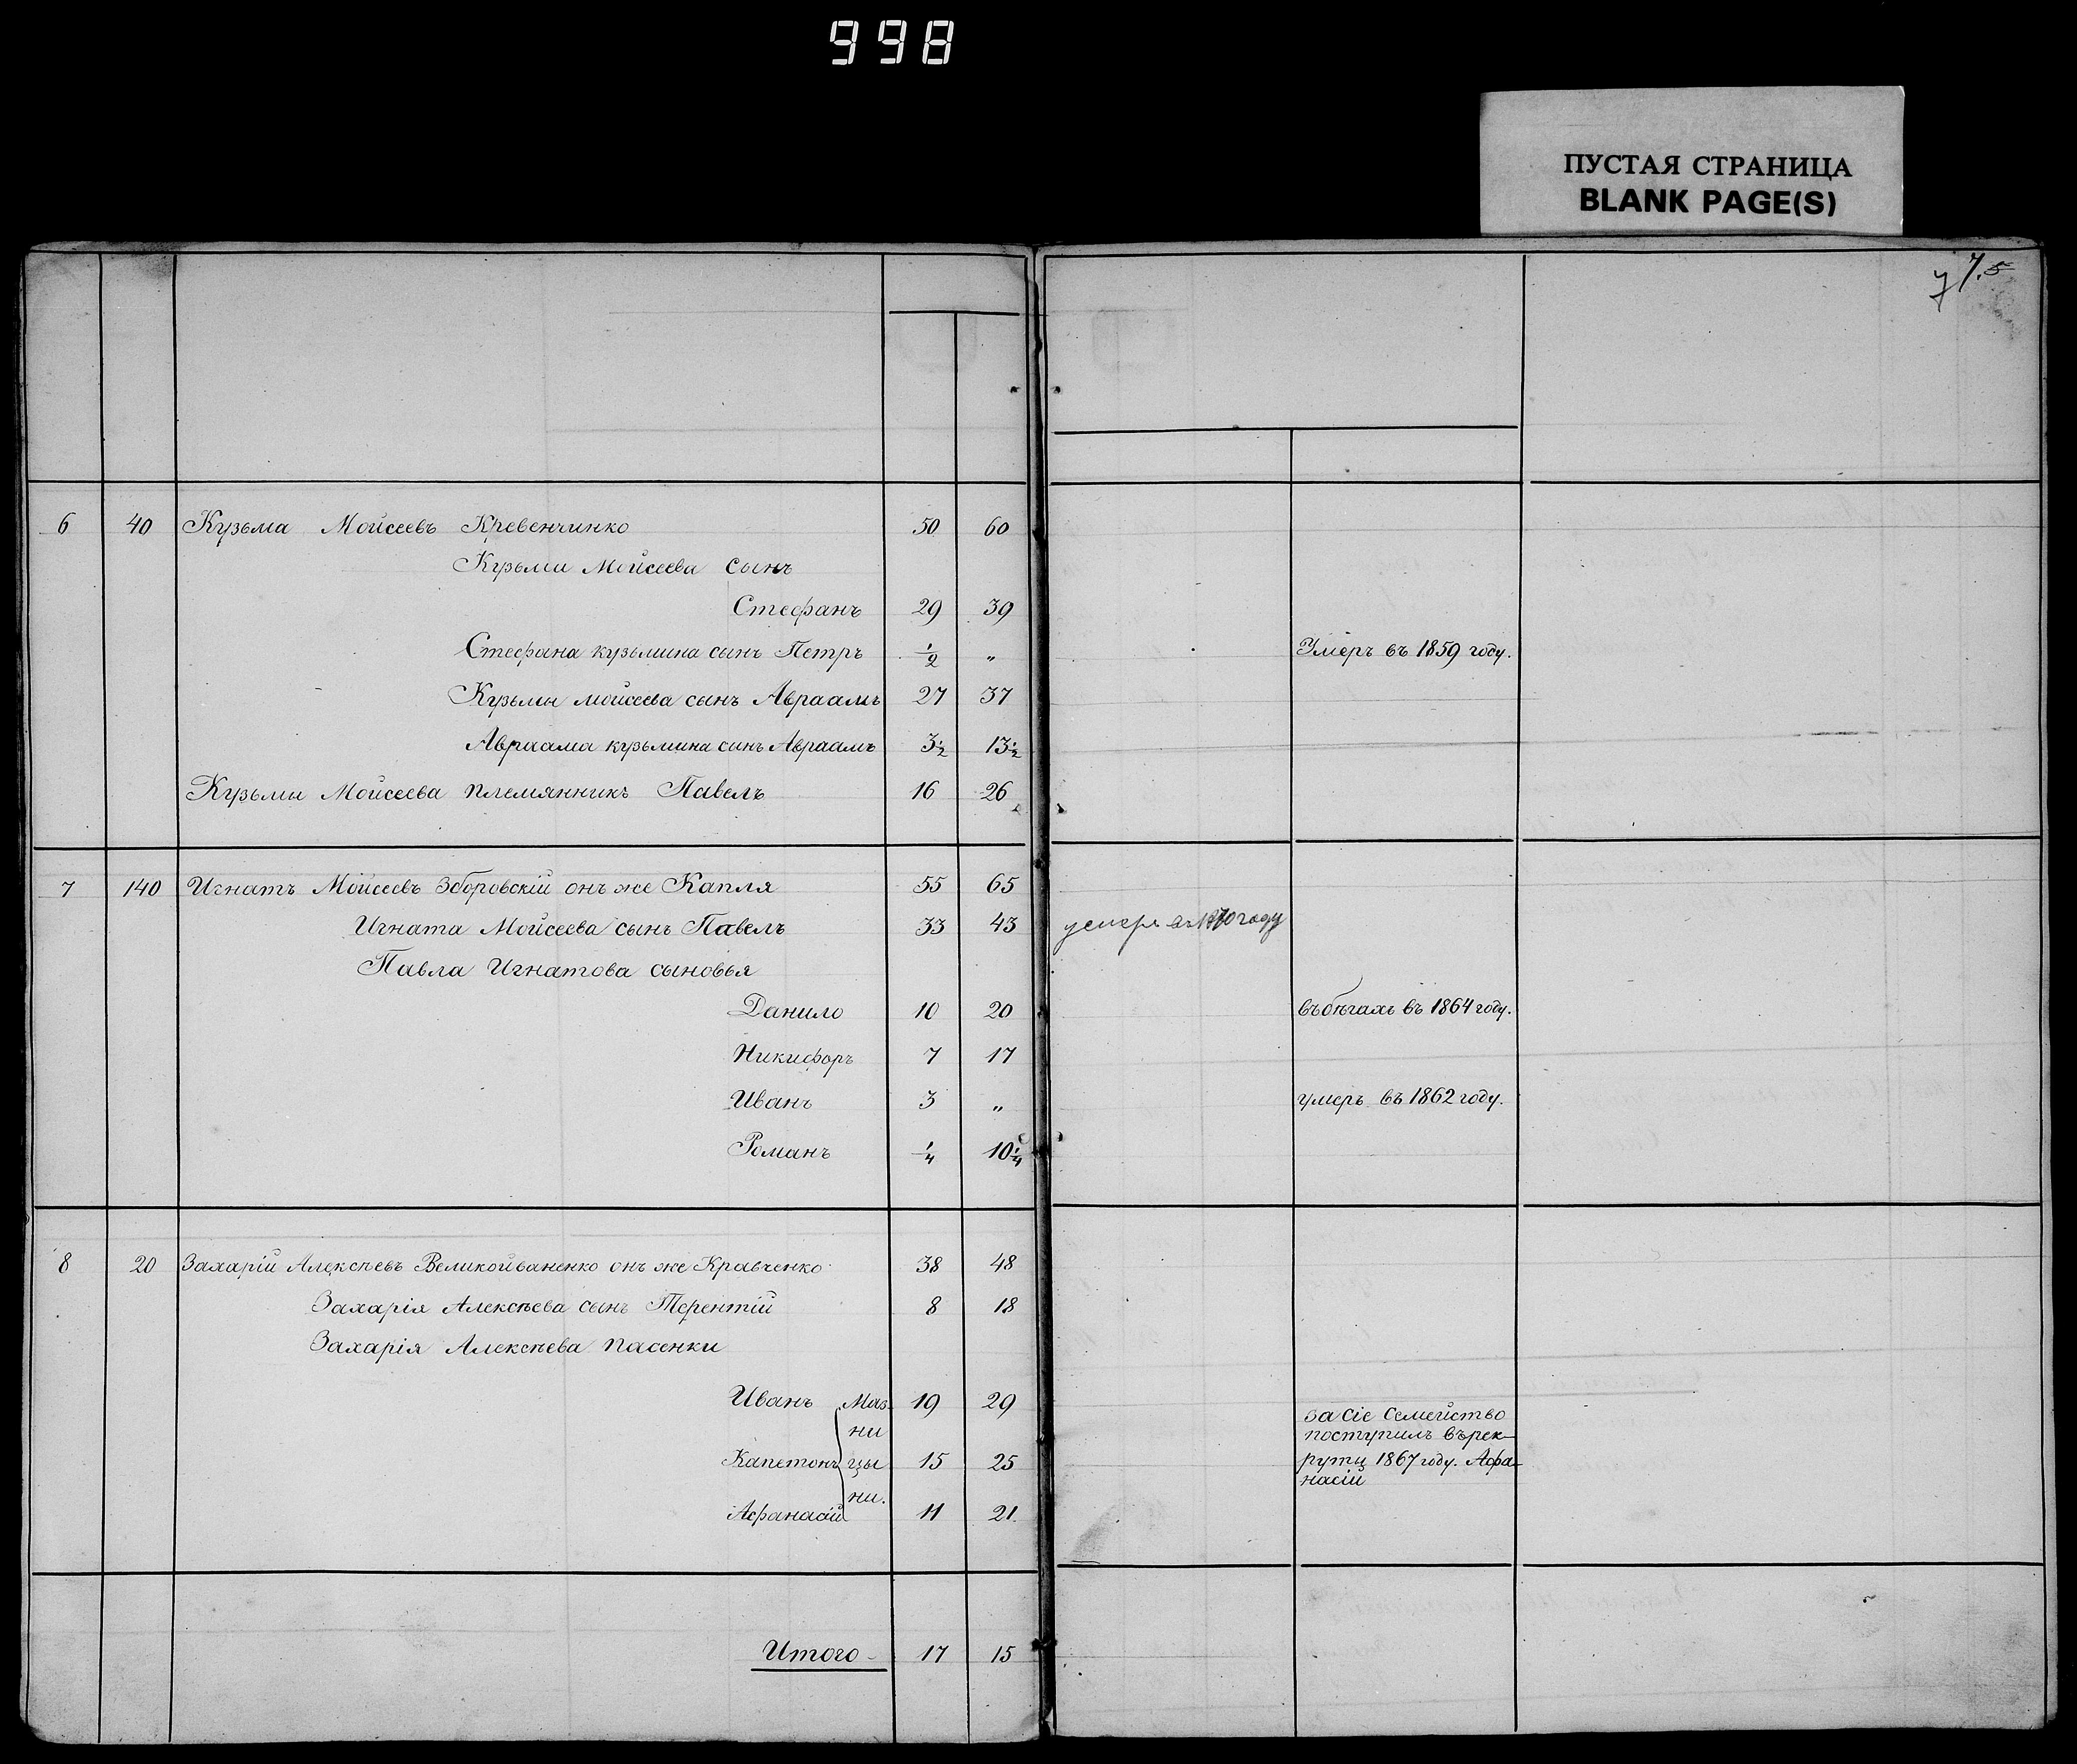 998
ПУСТАЯ СТРАНИЦА
BLANK PAGE(S)
7 7. 5
6 40 Кузьма Мойсеевъ Кревенчинко 50 60
Кузьми Мойсеева сынъ
Стефанъ 29 39
Стефана кузьмина сынъ Петръ 1/2 „ Умеръ въ 1859 году.
Кузьмы мойсеева сынъ Авраамъ 27 37
Авраама кузьмина сынъ Авраамъ 3 1/2 13 1/2
Кузьмы Мойсеева племянникъ Павелъ 16 26
7 140 Игнатъ Мойсеевъ Зборовскій онъ же Капля 55 65
Игната Мойсеева сынъ Павелъ 33 43 умеръ въ 1870 году
Павла Игнатова сыновья
Данило 10 20 въ бѣгахъ въ 1864 году.
Никифоръ 7 17
Иванъ 3 „ умеръ въ 1862 году.
Романъ 1/4 10 1/4
8 20 Захарій Алексѣевъ Великойваненко онъ же Кравченко 38 48
Захарія Алексѣева сынъ Терентій 8 18
Захарія Алексѣева пасенки
Иванъ Маз- 19 29
ни
Капетонъ цы 15 25
ни.
Афанасій 11 21
за сіе семейство
поступилъ въ рек-
руты 1867 году. Афа-
насій
Итого - 17 15